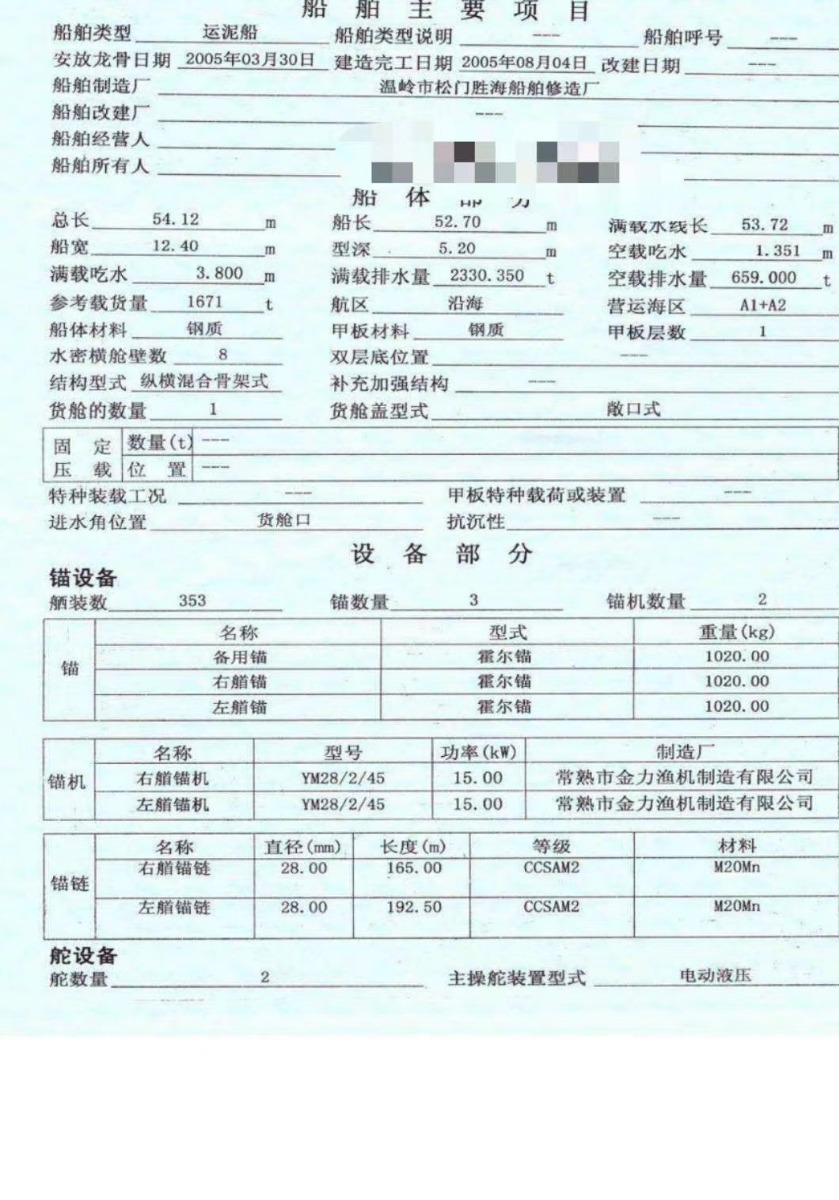 船舶主要项目
船舶类型 运泥船 船舶类型说明 --- 船舶呼号 ---
安放龙骨日期 2005年03月30日 建造完工日期 2005年08月04日 改建日期 ---
船舶制造厂 温岭市松门胜海船舶修造厂
船舶改建厂 ---
船舶经营人
船舶所有人
船体部分
总长 54.12 m 船长 52.70 m 满载水线长 53.72 m
船宽 12.40 m 型深 5.20 m 空载吃水 1.351 m
满载吃水 3.800 m 满载排水量 2330.350 t 空载排水量 659.000 t
参考载货量 1671 t 航区 沿海 营运海区 A1+A2
船体材料 钢质 甲板材料 钢质 甲板层数 1
水密横舱壁数 8 双层底位置 ---
结构型式 纵横混合骨架式 补充加强结构 ---
货舱的数量 1 货舱盖型式 敞口式
固定 数量(t) ---
压载 位置 ---
特种装载工况 --- 甲板特种载荷或装置 ---
进水角位置 货舱口 抗沉性 ---
设备部分
锚设备
舾装数 353 锚数量 3 锚机数量 2
名称 型式 重量(kg)
备用锚 霍尔锚 1020.00
锚 右艏锚 霍尔锚 1020.00
左艏锚 霍尔锚 1020.00
名称 型号 功率(kW) 制造厂
锚机 右艏锚机 YM28/2/45 15.00 常熟市金力渔机制造有限公司
左艏锚机 YM28/2/45 15.00 常熟市金力渔机制造有限公司
名称 直径(mm) 长度(m) 等级 材料
右艏锚链 28.00 165.00 CCSAM2 M20Mn
锚链
左艏锚链 28.00 192.50 CCSAM2 M20Mn
舵设备
舵数量 2 主操舵装置型式 电动液压